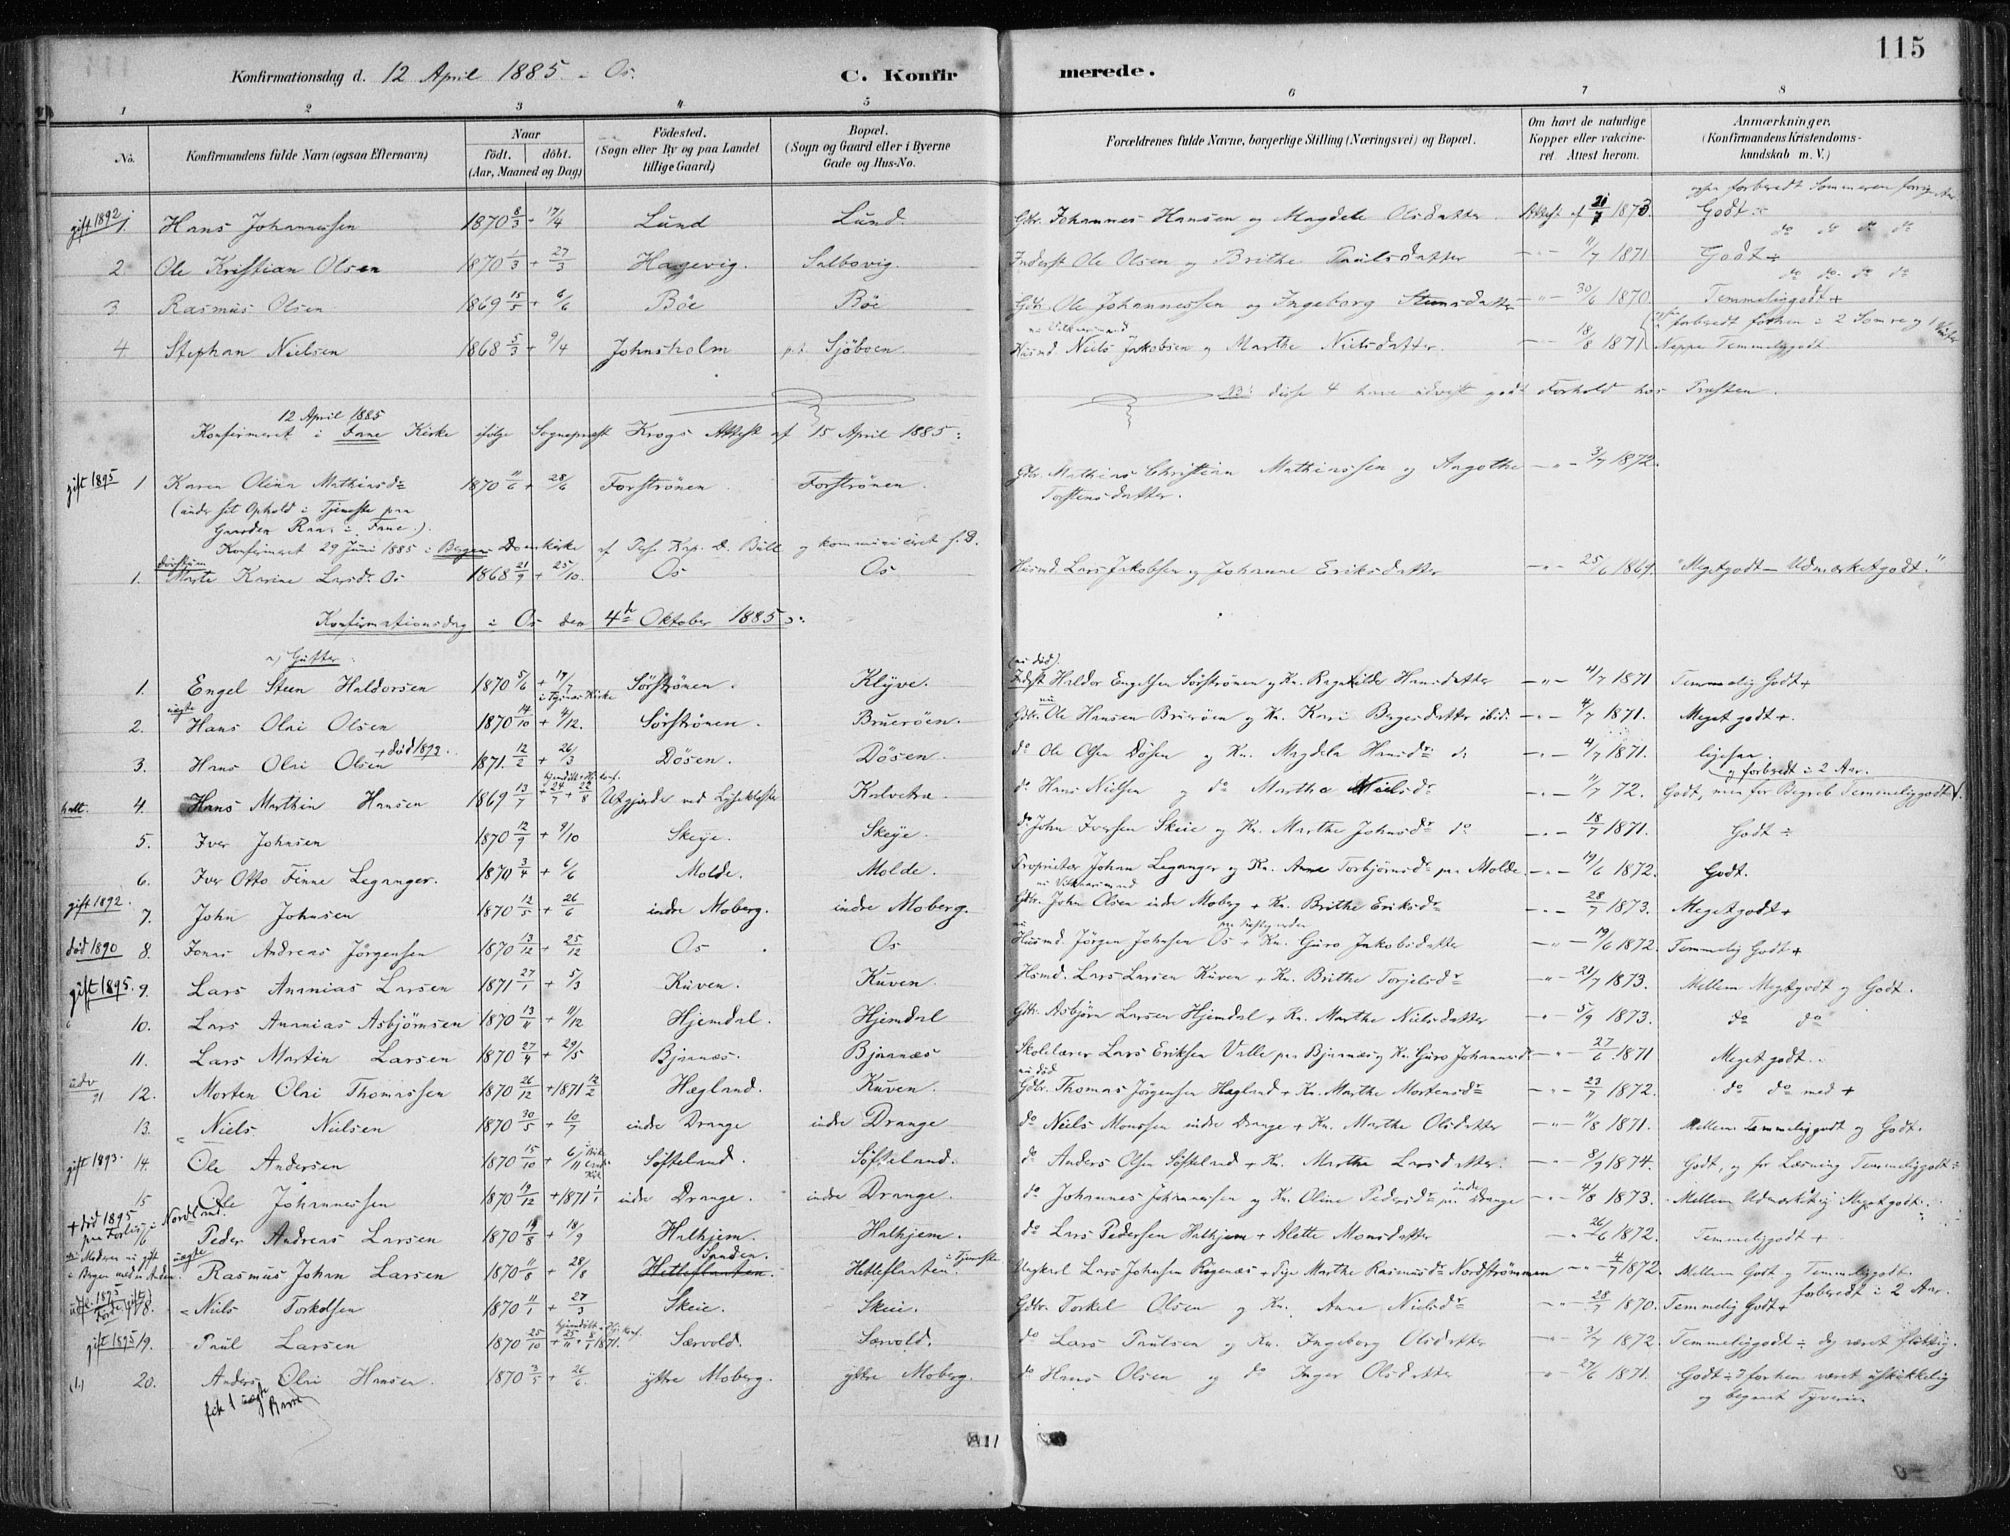 115
Konfirmationsdag d. 12 April 1885 - Os. C. Konfirmerede.
1 2 3 4 5 6 7 8
No. Konfirmandens fulde Navn (ogsaa Efternavn) Naar født. døbt. (Aar, Maaned og Dag) Fødested. (Sogn eller By og paa Landet tillige Gaard) Bopæl. (Sogn og Gaard eller i Byerne Gade og Hus-No. Forældrenes fulde Navne, borgerlige Stilling (Næringsvei) og Bopæl. Om havt de naturlige Kopper eller vakcineret. Attest herom. Anmærkninger. (Konfirmandens Kristendomskundskab m. V.)
ogsaa forberedt Sommeren forrige Aar
gift 1892 1. Hans Johannessen 1870 8/3 + 17/4 Lund Lund. Gbr. Johannes Hansen og Magdele Olsdatter Attest af 21/7 1873. Godt ÷
do do do do
2 Ole Kristian Olsen 1870 1/3 + 27/3 Hagevig. Salbovig. Inderst Ole Olsen og Brithe Paulsdatter - " - 11/7 1871. Godt ÷
do do do do
3 Rasmus Olsen 1869 15/5 + 6/6 Böe Böe Gbr. Ole Johannessen og Ingeborg Steensdatter - " - 30/6 1870. Temmeliggodt +
forberedt forhen i 2 Somre og 1 Vinter
4 Stephan Nielsen 1868 5/3 + 9/4 Johnsholm p.t. Sjöboen. Husmd. Niels Jakobsen og Marthe Nielsdatter. - " - 18/8 1871 Neppe Temmeliggodt
NB: disse 4 have udvist godt Forhold hos Præsten.
12 April 1885
Konfirmeret i Fane Kirke ifölge Sognepræst Krogs Attest af 15 April 1885:
gift 1895 1 Karen Olina Mathiasdr 1870 11/6 + 28/6 Forströnen Forströnen. Gbr. Mathias Christian Mathiassen og Aagothe - " - 3/7 1872.
(under sit Ophold i Tjeneste paa Torstensdatter.
Gaarden Raa i Fane.).
Konfirmeret 29 Juni 1885 i Bergens Domkirke af Pers. Kap. D. Bull og kommuniceret s. D.
1. Marte Karine Larsdr. Os 1868 21/9 + 25/10. Os Os Husmd. Lars Jakobsen og Johanne Eriksdatter - " - 25/6 1869. "Megetgodt - Udmærketgodt."
Konfirmationsdag i Os den 4de Oktober 1885:
a) Gutter
(nu död).
1. Engel Steen Haldorsen 1870 5/6 + 17/7 Sörströnen. Klyve. Indrst Haldor Engelsen Sörströnen og Kn. Ragnilde Hansdatter - " - 4/7 1871 Temmelig Godt +
uægte
2. Hans Olai Olsen 1870 14/10 + 4/12. Sörströnen. Bruröen. Gbr. Ole Hansen Bruröen og Kn. Kari Bagesdatter ibid. - " - 4/7 1871. Meget godt +.
3. Hans Olai Olsen + död 1893. 1871. 12/2 + 26/3 Dösen. Dösen. do Ole Olsen Dösen og Kn. Magdela Hansdr - " - 4/7 1871. ligesaa
og forberedt i 2 Aar.
4. Hans Marthin Hansen 1869 13/7 + 24/7 + 22/8 Utgjærde ved Lysekloster Kalvetræ. do Hans Nielsen og do Martha Nielsdr - " - 11/7 72. Godt, men for Begreb Temmeliggodt
5. Iver Johnsen 1870 12/9 + 9/10 Skeye. Skeye. do John Iversen Skeie og Kn. Marthe Johnsdr do - " - 18/7 1871. Godt ÷
6. Iver Otto Finne Leganger. 1870 3/4 + 6/6 Molde. Molde. Proprietær Johan Leganger og Kn. Anne Torbjörnsdr paa Molde. - " - 19/6 1872. Godt.
gift 1892. 7. John Johnsen 1870 12/5 + 26/6 indre Moberg. indre Moberg. Gbr. John Olsen indre Moberg + Kn. Brithe Eriksdr - " - 28/7 1873. Megetgodt +
död 1890 8. Jonas Andreas Jörgensen 1870 13/12 + 25/12 Os Os Husmd. Jörgen Johnsen Os + Kn. Guro Jakobsdatter - " - 19/6 1872. Temmelig Godt +
gift 1895. 9. Lars Ananias Larsen 1871 27/1 + 5/3 Kuven. Kuven. Hsmd. Lars Larsen Kuven + Kn. Brithe Torjelsdr - " - 21/7 1873. Mellem Megetgodt og Godt.
10. Lars Ananias Asbjörnsen 1870 13/11 + 11/12 Hjemdal. Hjemdal Gbr. Asbjörn Larsen Hjemdal + Kn. Marthe Nielsdatter - " - 5/9 1873. do do
11. Lars Martin Larsen 1870 27/4 + 29/5 Bjaanæs. Bjaanæs Skolelærer Lars Eriksen Valle paa Bjaanæs og Kn. Guro Johannesdr - " - 27/6 1871 Meget godt.
nu död
udv 91 12. Morten Olai Thomassen 1870 26/12 + 1871 12/2 Hægland. Kuven. Gbr. Thomas Jörgensen Hægland + Kn. Marthe Mortensdr - " - 23/7 1872. do do med +
13. Niels Nielsen 1870 30/5 + 10/7 indre Drange indre Drange do Niels Monssen indre Drange + Kn. Marthe Olsdatter - " - 11/8 1871. Mellem Temmeliggodt og Godt.
gift 1893. 14. Ole Andersen 1870 15/10 + 6/11 Söfteland. Söfteland. do Anders Olsen Söfteland + Kn. Marthe Larsdatter. - " - 8/9 1874. Godt, og for Læsning Temmeliggodt ÷
15 Ole Johannessen 1870 19/12 + 1871 1/1 indre Drange. indre Drange. do Johannes Johannessen og Kn. Oline Pedersdr paa indre Drange - " - 4/8 1873. Mellem Udmærket og Megetgodt.
+ död 1895 paa Forlis i Nordland. 16 Peder Andreas Larsen 1870 19/8 + 18/9 Halhjem. Halhjem. do Lars Pedersen Halhjem + Alette Monsdatter - " 26/6 1872. Temmeliggodt +
Moderen nu gift i Bergen med en Anden. uægte Rasmus Johan Larsen 1870 11/8 + 28/8 Hetleflaaten. Sanden. Hetleflaaten i Tjeneste Ungkarl Lars Johnsen Röjenæs + Pige Marthe Rasmusdr Nordströmmen - " - 4/7 1872. Mellem Godt og Temmeliggodt.
forberedt i 2 Aar.
18. Niels Torkelsen 1870 11/1 + 27/3 Skeie. Skeie. Gbr. Torkel Olsen og Kn. Anne Nielsdr - " - 28/7 1870. Temmelig Godt +
gift 1895 19. Paul Larsen 1870 25/10 + 25/11 + 8/1 1871. Særvold. Særvold. do Lars Paulsen og Kn. Ingeborg Olsdatter - " - 3/7 1872. Temmeliggodt ÷ dog været flittig.
(1.) 20. Anders Olai Hansen. 1870 3/5 + 26/6. ytre Moberg. ytre Moberg. do Hans Olsen og do Inger Olsdatter - " - 27/6 1871. Godt ÷ forhen været uskikkelig
fik 1 uægte Barn og begaaet Tyverier